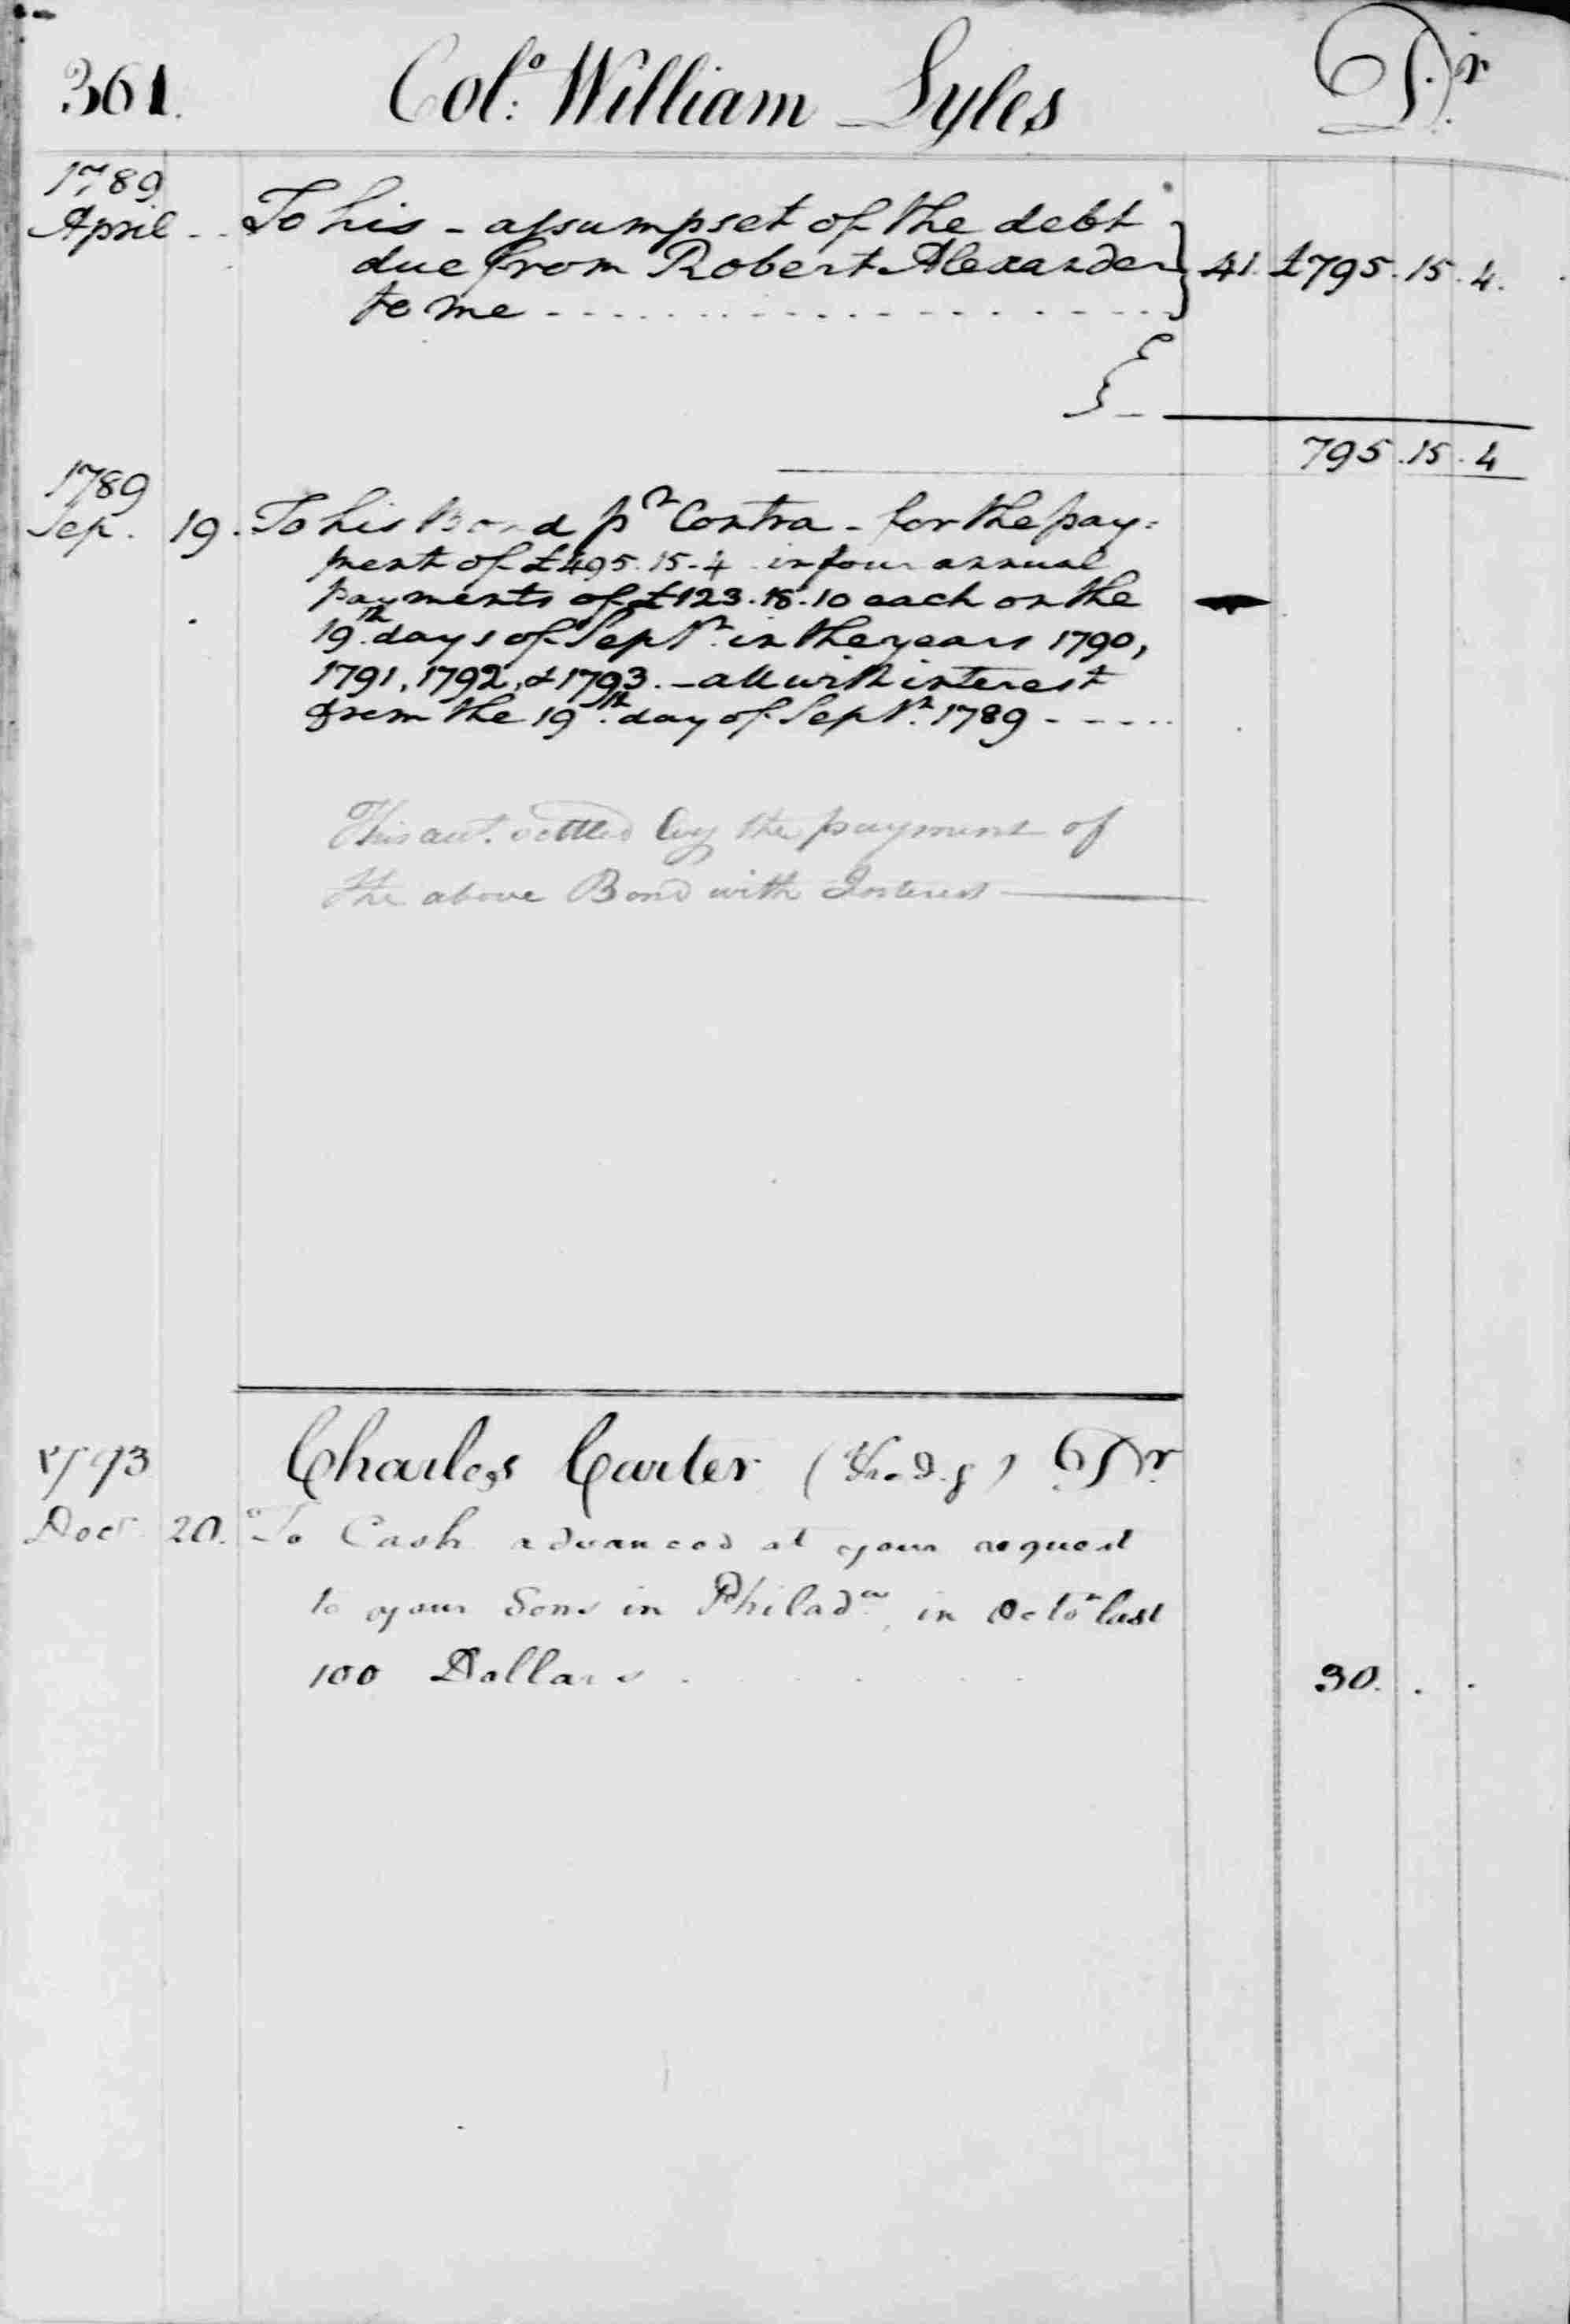 361. Colo: William Lyles Dr
1789
April - - To his - assumpset of the debt
due from Robert Alexander 41. £795.15.4.
to me
795.15.4
1789
Sep. 19. To his Bond pr Contra - for the pay=
ment of £495.15.4 in four annual
payments of £123.18.10 each on the
19th days of Septr. in the years 1790,
1791, 1792, & 1793. - all with interest
from the 19th. day of Septr. 1789 - - - - -
This acct. settled by the payment of
the above Bond with Interest
1793 Charles Carter Dr
Decr 20. To Cash advanced at your request
to your Sons in Philada. in Octor last
100 Dollars 30. . .